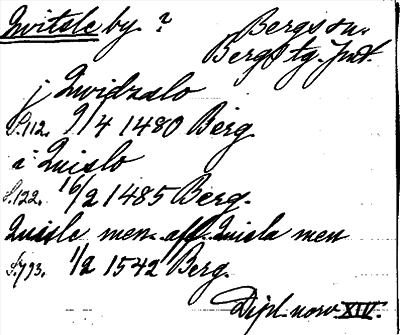 Qvitsle by. ? Bergs sn.
Bergs tg. Jmt.
j Qwidzslo
S.112. 9/4 1480 Berg
a Quislo
S.122. 16/2 1485 Berg.
Quisle men. aff Quisla men
S.793. 1/2 1542 Berg.
Dipl. norv. XIV.